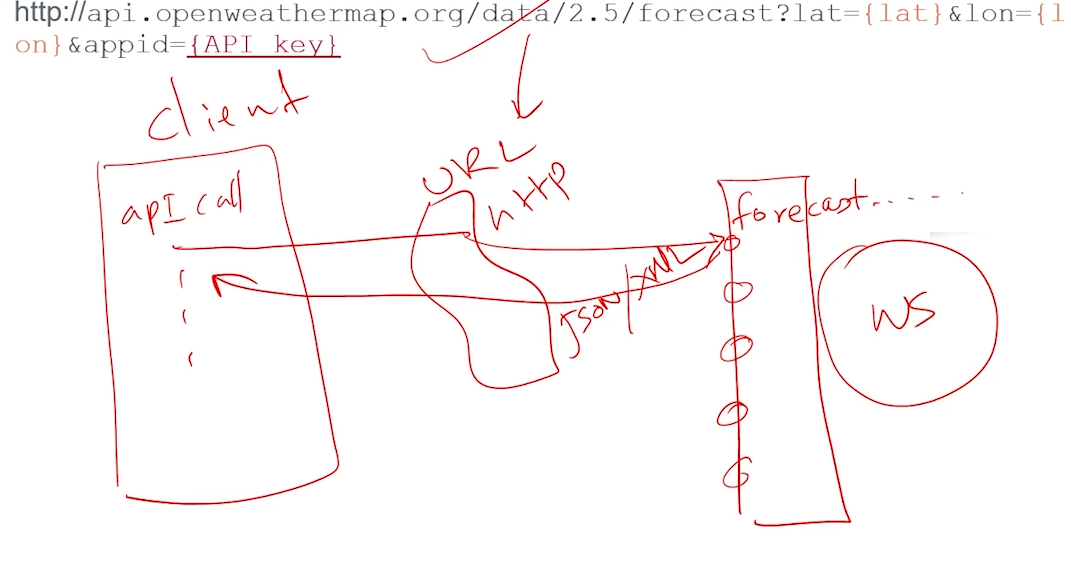 http://api.openweathermap.org/data/2.5/forecast?lat={lat}&lon={l
on}&appid={API key}
client
URL
http
apI call
forecast.....
json/xML
WS